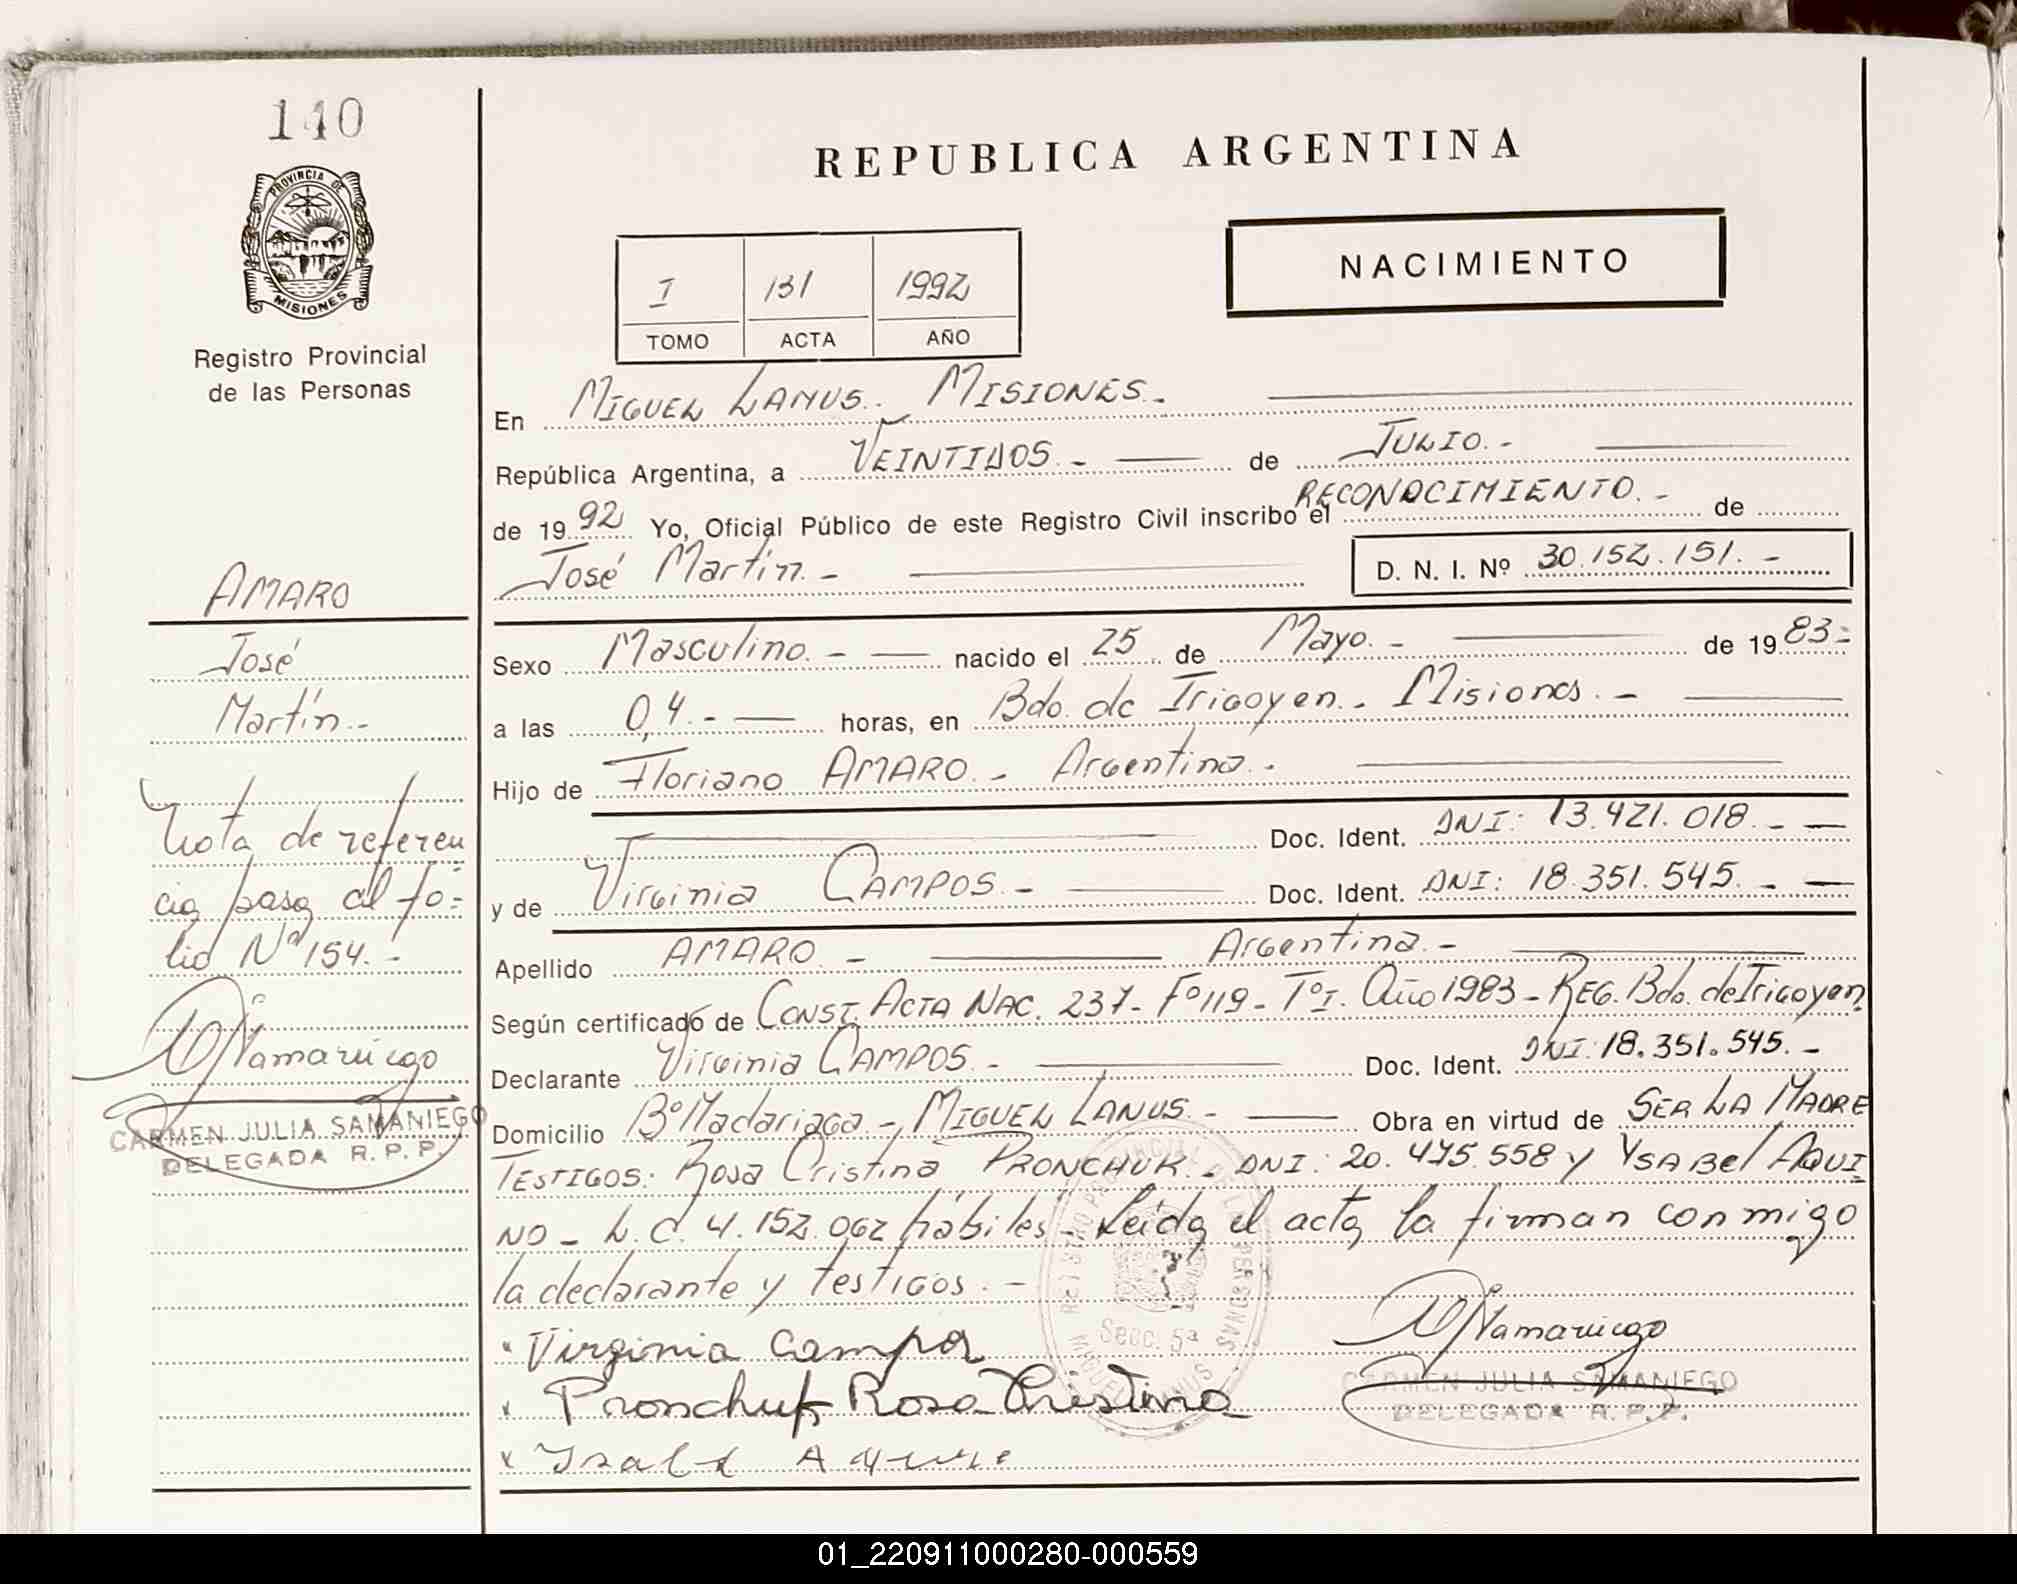 140
PROVINCIA DE
MISIONES
Registro Provincial
de las Personas
AMARO
José
Martín.-
Nota de referen
cia pasa al fo=
lio Nº 154.-
CARMEN JULIA SAMANIEGO
DELEGADA R. P. P.
REPUBLICA ARGENTINA
NACIMIENTO
I 131 1992
TOMO ACTA AÑO
En MIGUEL LANUS. MISIONES.-
República Argentina, a VEINTIDOS.- de JULIO.-
de 1992 Yo, Oficial Público de este Registro Civil inscribo el RECONOCIMIENTO.- de
José Martín.- D. N. I. Nº 30.152.151.-
Sexo Masculino.- nacido el 25 de Mayo.- de 1983=
a las 0,4.- horas, en Bdo. de Irigoyen. Misiones.-
Hijo de Floriano AMARO.- Argentina.-
Doc. Ident. DNI: 13.421.018.-
y de Virginia CAMPOS.- Doc. Ident. DNI: 18.351.545.-
Apellido AMARO.- Argentina.-
Según certificado de CONST. ACTA NAC. 237- Fº119- TºI. Año 1983- REG. Bdo. de Irigoyen
Declarante Virginia CAMPOS.- Doc. Ident. DNI: 18.351.545.-
Domicilio Bº Madariaga - MIGUEL LANUS.- Obra en virtud de SER LA MADRE
TESTIGOS: Rosa Cristina PRONCHUK.- DNI: 20.475.558 y YSABEL AQUI
NO - L.C. 4.152.062 hábiles Leída el acta, la firman conmigo
la declarante y testigos.-
Virginia Campos
Pronchuk Rosa Cristina
CARMEN JULIA SAMANIEGO
DELEGADA R. P. P.
REGISTRO PROVINCIAL DE LAS PERSONAS
Secc. 5ª
MIGUEL LANUS
01_220911000280-000559